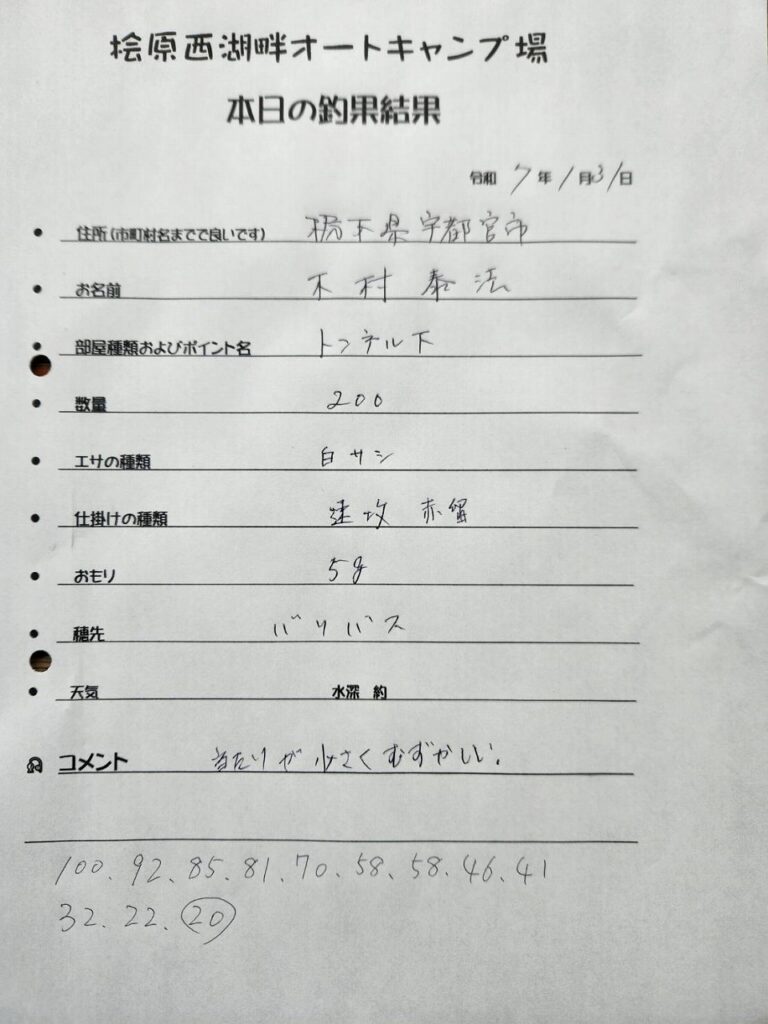 桧原西湖畔オートキャンプ場
本日の釣果結果
令和 7 年 1 月 31 日
住所(市町村名までで良いです) 栃木県宇都宮市
お名前 木村泰法
部屋種類およびポイント名 トンネル下
数量 200
エサの種類 白サシ
仕掛けの種類 速攻 赤留
おもり 5g
穂先 バリバス
天気 水深 約
コメント 当たりが少さくむずかしい。
100. 92. 85. 81. 70. 58. 58. 46. 41
32. 22. 20